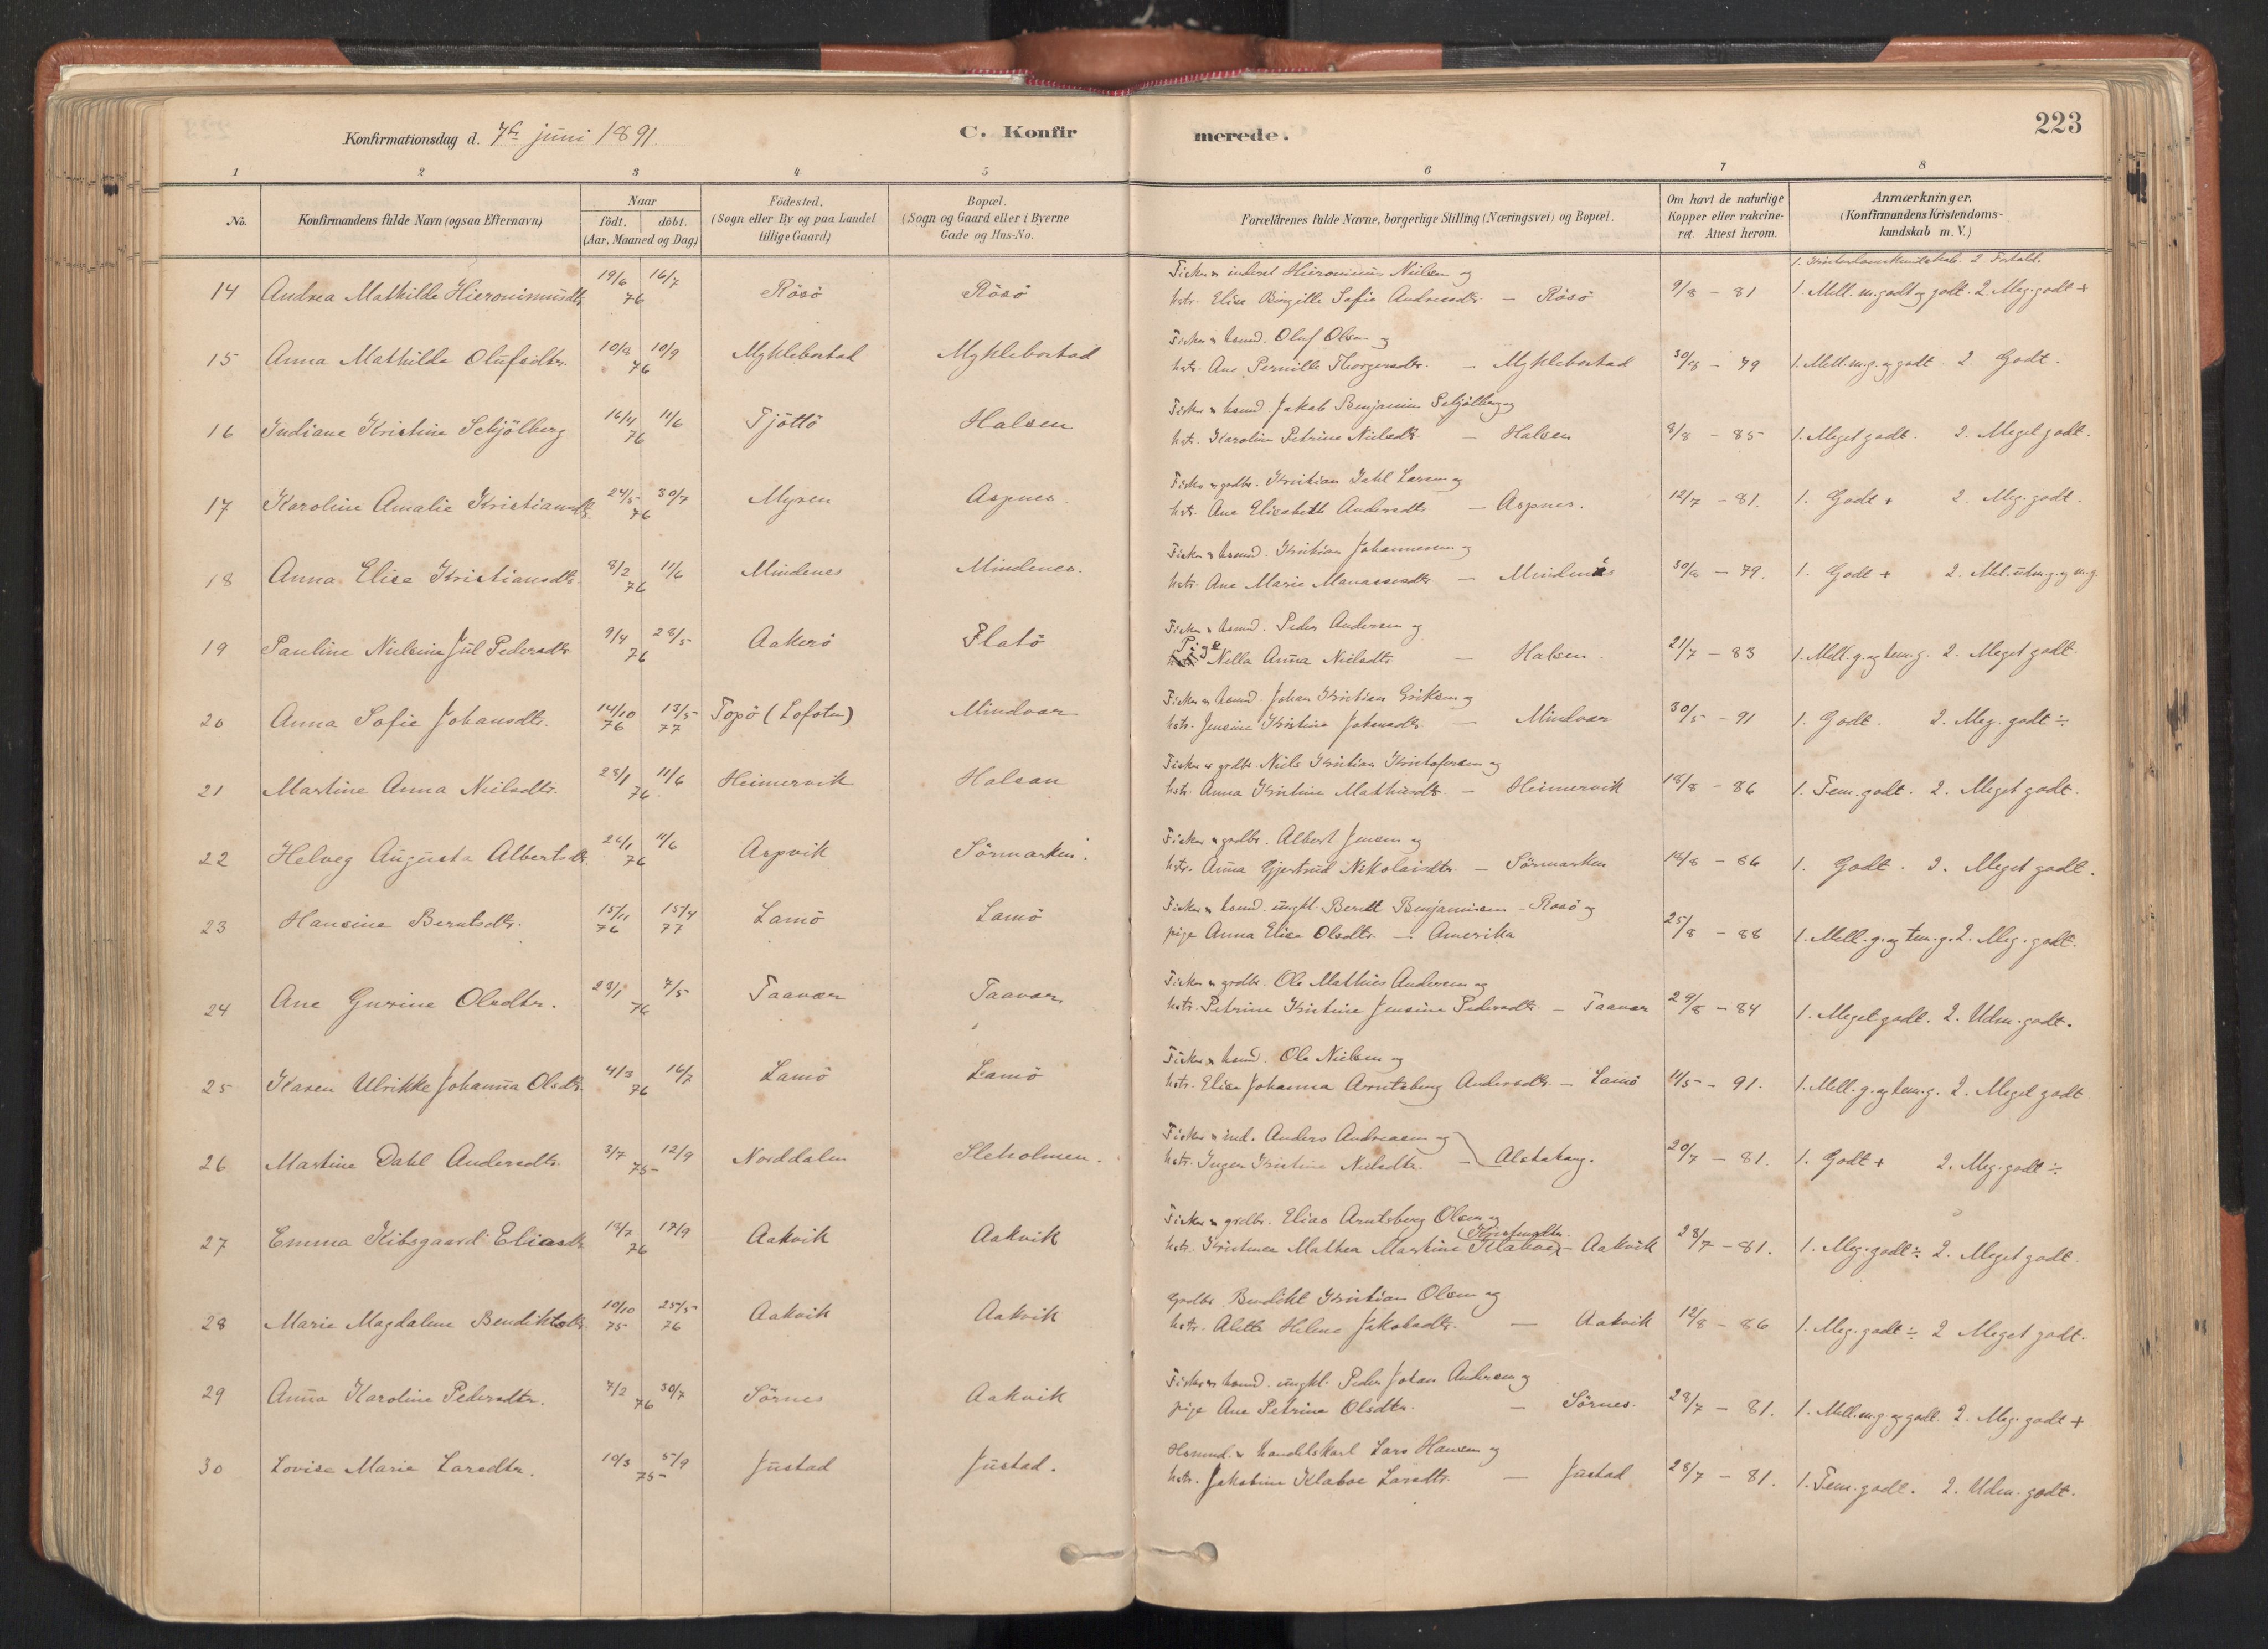 Konfirmationsdag d. 7de juni 1891
C. Konfir
merede.
223
1 2 3 4 5 6 7 8
No.
Konfirmandens fulde Navn (ogsaa Efternavn)
Naar
födt. döbt.
(Aar, Maaned og Dag)
Födested.
(Sogn eller By og paa Landet
tillige Gaard)
Bopæl.
(Sogn og Gaard eller i Byerne
Gade og Hus-No.
Forældrenes fulde Navne, borgerlige Stilling (Næringsvei) og Bopæl.
Om havt de naturlige
Kopper eller vakcine-
ret. Attest herom.
Anmærkninger.
(Konfirmandens Kristendoms-
kundskab m. V.)
1. Kristendomskundskab. 2. Forhold.
14 Andrea Mathilde Hieronimusdtr. 19/6 16/7 76 Rösö Rösö
Fisker & inderst Hieronimus Nielsen og
hstr. Elise Birgitte Sofie Andreasdtr. – Rösö 9/8 – 81 1. Mell. m.godt og godt. 2. Meg. godt +
15 Anna Mathilde Olufsdtr. 10/9 76 Myklebostad Myklebostad
Fisker & hsmd. Oluf Olsen og
hstr. Ane Pernille Thorgersdtr. – Myklebostad 30/8 – 79 1. Mell. m.g. og godt. 2. Godt.
16 Indiane Kristine Schjölberg 16/4 11/6 76 Tjöttö Halsen
Fisker & hsmd Jakob Benjamin Schjölberg og
hstr. Karoline Petrine Nielsdtr. – Halsen 8/8 – 85 1. Meget godt. 2. Meget godt.
17 Karoline Amalie Kristiansdtr. 24/5 30/7 76 Myren Aspnes.
Fisker & grdbr. Kristian Dahl Larsen og
hstr. Ane Elisabeth Andersdtr. – Aspnes. 12/7 – 81. 1. Godt + 2. Meg. godt.
18 Anna Elise Kristiansdtr. 8/2 11/6 76 Mindenes Mindenes.
Fisker & hsmd. Kristian Johannesen og
hstr. Ane Marie Manassesdtr. – Mindenes – 79. 1. Godt + 2. Mel. udm.g. og m.g.
19 Pauline Nielsine Jul Pedersdtr. 9/4 28/5 76 Aakerö Flatö
Fisker & hsmd. Peder Andersen og
Pige Nella Anna Nielsdtr. – Halsen. 21/7 – 83 1. Mell. g. og tem.g. 2. Meget godt.
20 Anna Sofie Johansdtr. 14/10 76 13/5 77 Topö (Lofoten) Mindvær
Fisker & hsmd. Johan Kristian Eriksen og
hstr. Jensine Kristine Johansdtr. – Mindvær 30/5 – 91 1. Godt. 2. Meg. godt ÷
21 Martine Anna Nielsdtr. 28/1 11/6 76. Heimervik Halsan
Fisker & grdbr. Niels Kristian Kristofersen og
hstr. Anna Kristine Mathiesdtr. – Heimervik 18/8 – 86 1. Tem. godt. 2. Meget godt.
22 Helveg Augusta Albertsdtr. 26/1 11/6 76 Aspvik Sörmarken.
Fisker & grdbr. Albert Jensen og
hstr. Anna Gjertrud Nikolaisdtr. – Sörmarken 18/8 – 86 1. Godt. 2. Meget godt.
23 Hansine Berntsdtr. 15/11 76 15/4 77 Lamö Lamö
Fisker & hsmd. ungkl. Bernt Benjaminsen – Rosö og
pige Anna Elise Olsdtr. – Amerika 25/8 – 88 1. Mell. g. og tem.g. 2. Meg. godt.
24 Ane Gurine Olsdtr. 23/1 7/5 76 Taavær Taavær
Fisker & grdbr. Ole Mathias Andersen og
hstr. Petrine Kristine Jensine Pedersdtr. – Taavær 29/8 – 84 1. Meget godt. 2. Udm. godt.
25 Karen Ulrikke Johanna Olsdtr. 4/3 16/7 76 Lamö Lamö
Fisker & hsmd. Ole Nielsen og
hstr. Elise Johanna Arntsberg Andersdtr. – Lamö 11/5 – 91. 1. Mell. g. og tem.g. 2. Meget godt
26 Martine Dahl Andersdtr. 3/7 12/9 75 Norddalen Sleholmen.
Fisker & ind. Anders Andreasen og
hstr. Inger Kristine Nielsdtr. – Alstahaug. 20/7 – 81. 1. Godt + 2. Meg. godt ÷
27 Emma Kibsgaard Eliasdtr. 13/7 17/9 76 Aakvik Aakvik
Fisker & grdbr. Elias Arntsberg Olsen og
hstr. Kristense Mathea Martine Klaboe – Aakvik 28/7 – 81. 1. Meg. godt ÷ 2. Meget godt.
28 Marie Magdalene Bendiktsdtr. 10/10 75 25/5 76 Aakvik Aakvik
Grdbr. Bendikt Kristian Olsen og
hstr. Alette Helene Jakobsdtr. – Aakvik 12/8 – 86 1. Meg. godt ÷ 2 Meget godt.
29 Anna Karoline Pedersdtr. 7/2 30/7 76 Sörnes Aakvik
Fisker & hsmd. ungkl. Peder Johan Andersen og
pige Ane Petrine Olsdtr. – Sörnes. 28/7 – 81. 1. Mell. m.g. og godt. 2. Meg. godt +
30 Lovise Marie Larsdtr. 10/3 5/9 75 Justad Justad.
Hsmnd. & handelskarl Lars Hansen og
hstr. Jakobine Klaboe Larsdtr. – Justad 28/7 – 81. 1. Tem. godt. 2. Udm. godt.